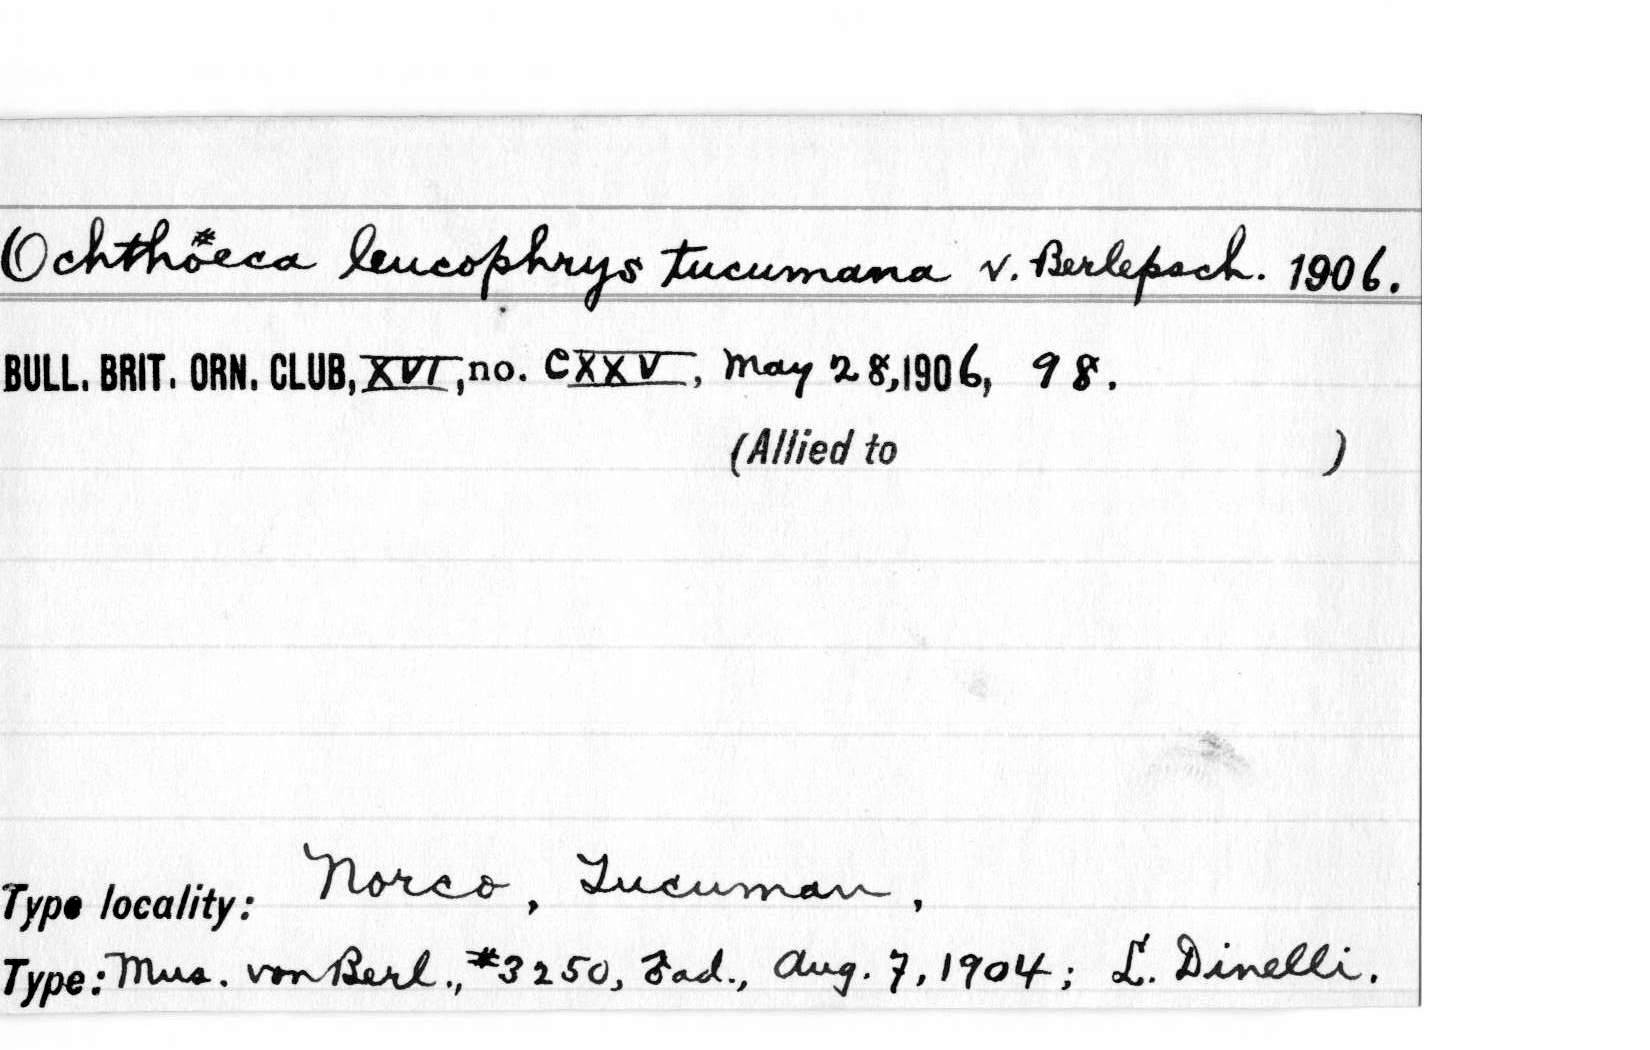 Ochthöeca leucophrys tucumana v. Berlepsch. 1906.
BULL. BRIT. ORN. CLUB, XVI, no. CXXV, May 28, 1906, 98.
(Allied to )
Type locality: Norco, Tucuman,
Type: Mus. von Berl., #3250, ♂ad., Aug. 7, 1904; L. Dinelli.